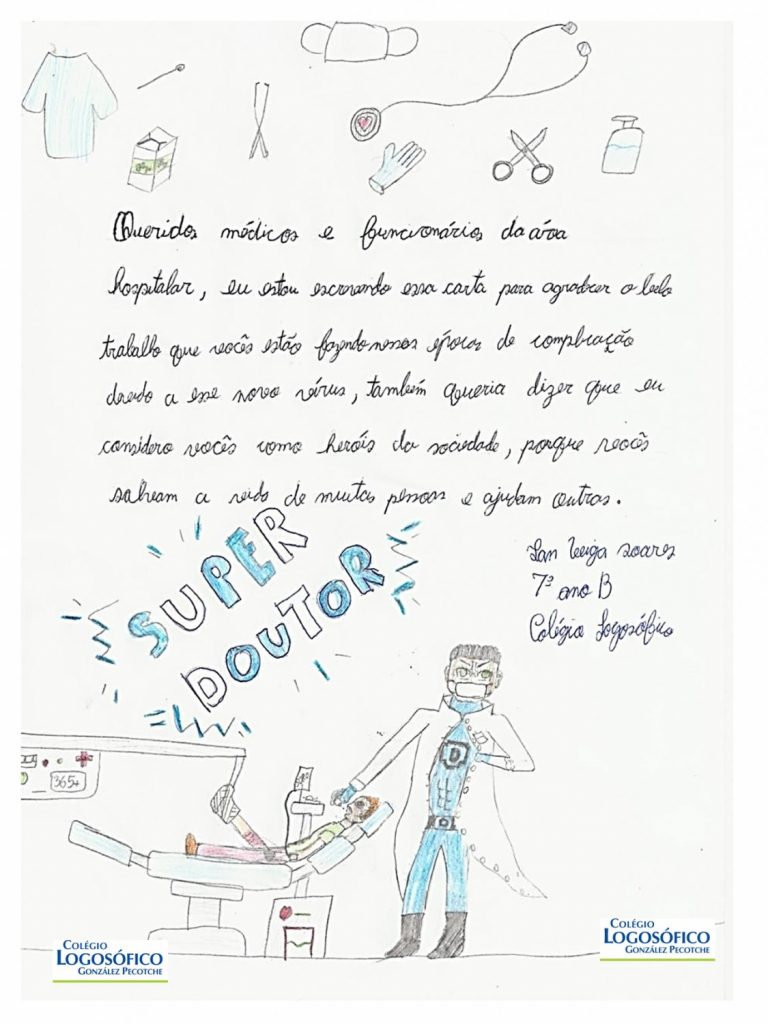 Queridos médicos e funcionários da área
hospitalar, eu estou escrevendo essa carta para agradecer o belo
trabalho que vocês estão fazendo nessas épocas de complicação
devido a esse novo vírus, também queria dizer que eu
considero vocês como heróis da sociedade, porque vocês
salvam a vida de muitas pessoas e ajudam outras.
Ian Veiga Soares
7º ano B
Colégio Logosófico
SUPER
DOUTOR
D
365+
COLÉGIO
LOGOSÓFICO
GONZÁLEZ PECOTCHE
COLÉGIO
LOGOSÓFICO
GONZÁLEZ PECOTCHE